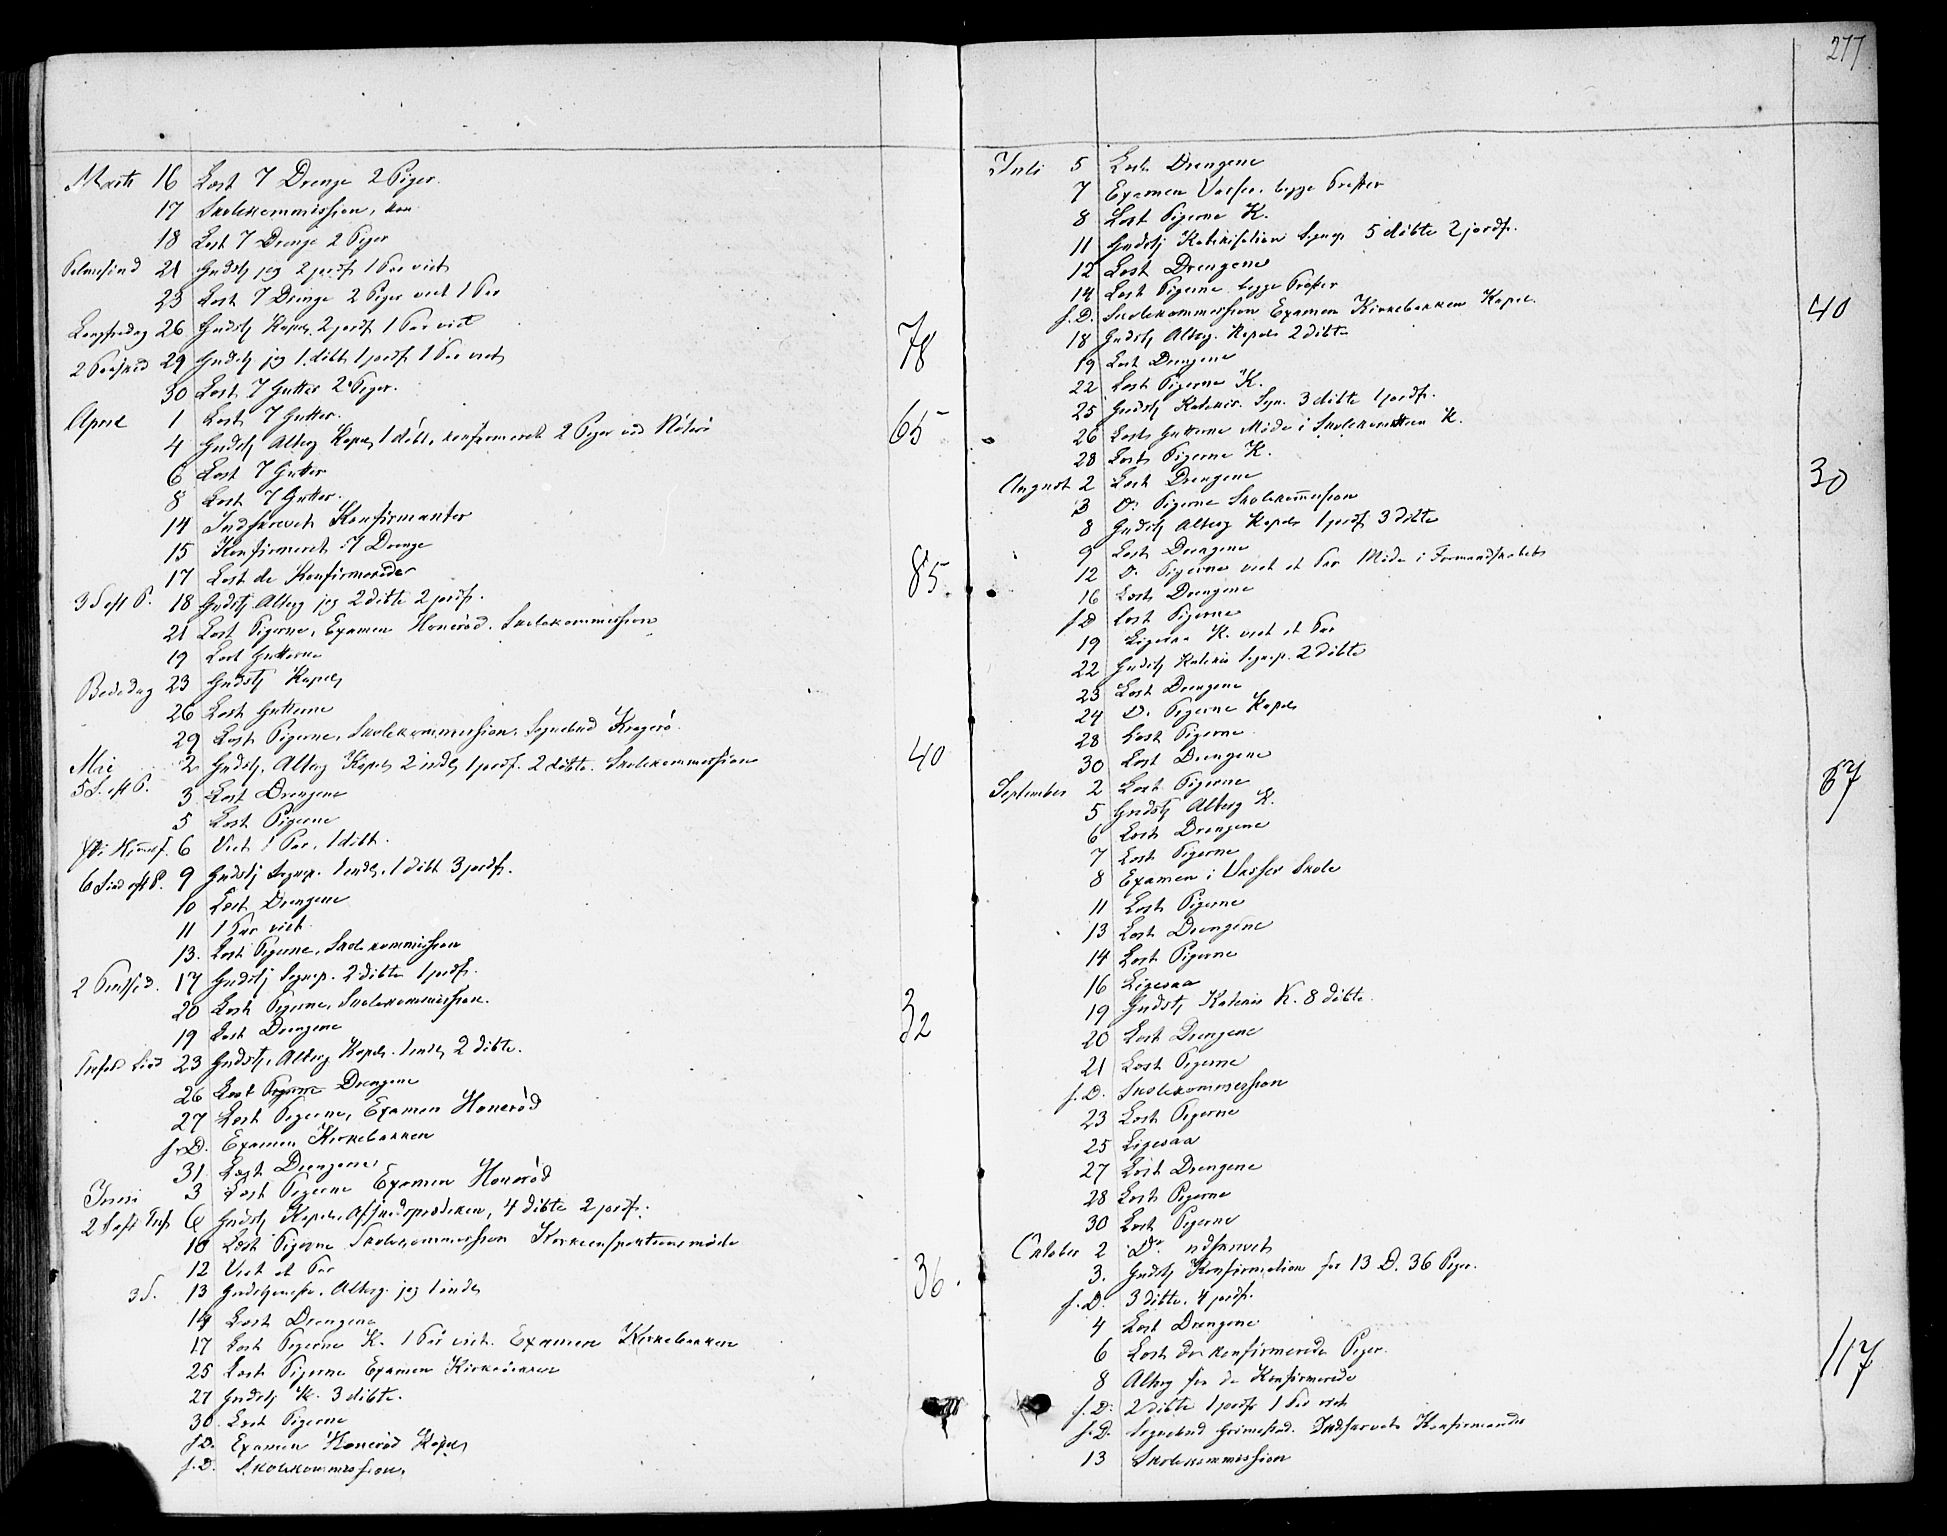 Marts 16 Læst 7 Drenge 2 Piger.
17 Skolekommission,
18 Læst 7 Drenge 2 Piger
Palmesønd 21 Gudstj jeg 2 jordf 1 Par viet
23 Læst 7 Drenge 2 Piger viet 1 Par
Langfredag 26 Gudstj Kapel. 2 jordf 1 Par viet
78
2 Paasked 29 Gudstj jeg 1 døbt 1 jordf 1 Par viet
30 Læst 7 Gutter 2 Piger.
April 1 Læst 7 Gutter.
4 Gudstj Alterg Kapel, 1 døbt, konfirmeret 2 Piger ved Nøterø
65
6 Læst 7 Gutter
8 Læst 7 Gutter.
14 Indskrevet Konfirmanter
15 Konfirmeret 7 Drenge
17 Læst de Konfirmerede
85.
3 S eft P. 18 Gudstj Alterg jeg 2 døbte 2 jordf.
21 Læst Pigerne, Examen Honerød. Skolekommission
19 Læst Gutterne
Bededag 23 Gudstj Kapel,
26 Læst Gutterne
29 Læst Pigerne, Skolekommission. Sognebud Kragerø.
Mai 2 Gudstj. Alterg Kapel, 2 indl, 1 jordf. 2 døbte. Skolekommission
40
5 S. eft P. 3 Læst Drengene
5 Læst Pigerne
Kri Himmf. 6 Viet 1 Par, 1 døbt.
6 Sønd eft P. 9 Gudstj Sognep. 1 indl, 1 døbt 3 jordf.
10 Læst Drengene
11 1 Par viet
13. Læst Pigerne, Skolekommission
2 Pintsed. 17 Gudstj Sognep. 2 døbte 1 jordf.
20 Læst Pigerne, Skolekommission.
19 Læst Drengene
32
Trefol Sønd 23 Gudstj, Alterg Kapel. 1 indl, 2 døbte.
26 Læst Pigerne Drengene
27 Læst Pigerne, Examen Honerød
s. D. Examen Kirkebakken
31. Læst Drengene
Juni 3 Læst Pigerne Examen Honerød
2 S eft Tref 6 Gudstj Kapel, Afskedsprædiken, 4 døbte 2 jordf.
10 Læst Pigerne Skolekommission Kirkeinspektionsmøde
12 Viet et Par
36.
3 S. 13 Gudstjeneste. Alterg. jeg 1 indl,
14 Læst Drengene
17 Læst Pigerne K. 1 Par viet. Examen Kirkebakken
25 Læst Pigerne Examen Kirkebakken
27 Gudstj K. 3 døbte.
30. Læst Pigerne
s. D. Examen Honerød Kapel,
s. D. Skolekommission,
277
Juli 5 Læst Drengene
7 Examen Vasser. begge Prester
8 Læst Pigerne K.
11 Gudstj Katekisation Sognep 5 døbte 2 jordf.
12 Læst Drengene
14 Læst Pigerne begge Prester
s. D. Skolekommission Examen Kirkebakken Kapel.
40
18 Gudstj Alterg. Kapel 2 døbte
19 Læst Drengene
22 Læst Pigerne K.
25 Gudstj Katekis. Sgn. 3 døbte 1 jordf.
26 Læst Gutterne Møde i Skolekomiteen K.
28 Læst Pigerne K.
August 2 Læst Drengene
30
3 D. Pigerne Skolekommission
8 Gudstj Alterg Kapel 1 jordf 3 døbte
9 Læst Drengene
12 D. Pigerne viet et Par Møde i Formandskabet
16 Læst Drengene
s. D Læst Pigerne
19 Ligesaa K. viet et Par
22 Gudstj Katekis Sognep. 2 døbte
23 Læst Drengene
24 D. Pigerne Kapel
28 Læst Pigerne
30 Læst Drengene
September 2 Læst Pigerne
67
5 Gudstj Alterg K.
6 Læst Drengene
7 Læst Pigerne
8 Examen i Vasser Skole
11 Læst Pigerne
13 Læst Drengene
14 Læst Pigerne
16 Ligesaa
19 Gudstj Katekis K. 8 døbte.
20 Læst Drengene
21 Læst Pigerne
s. D. Skolekommission
23 Læst Pigerne
25 Ligesaa
27 Læst Drengene
28 Læst Pigerne
30 Læst Pigerne
Oktober 2 Do. udskrevet
3. Gudstj Konfirmation for 13 D. 36 Piger.
s. D. 3 døbte. 4 jordf.
4 Læst Drengene
6 Læst de konfirmerede Piger.
117
8 Alterg for de Konfirmerede
s. D. 2 døbte 1 jordf 1 Par viet
s. D. Sognebud Grimestad. Indskrevet Konfirmander
13 Skolekommission